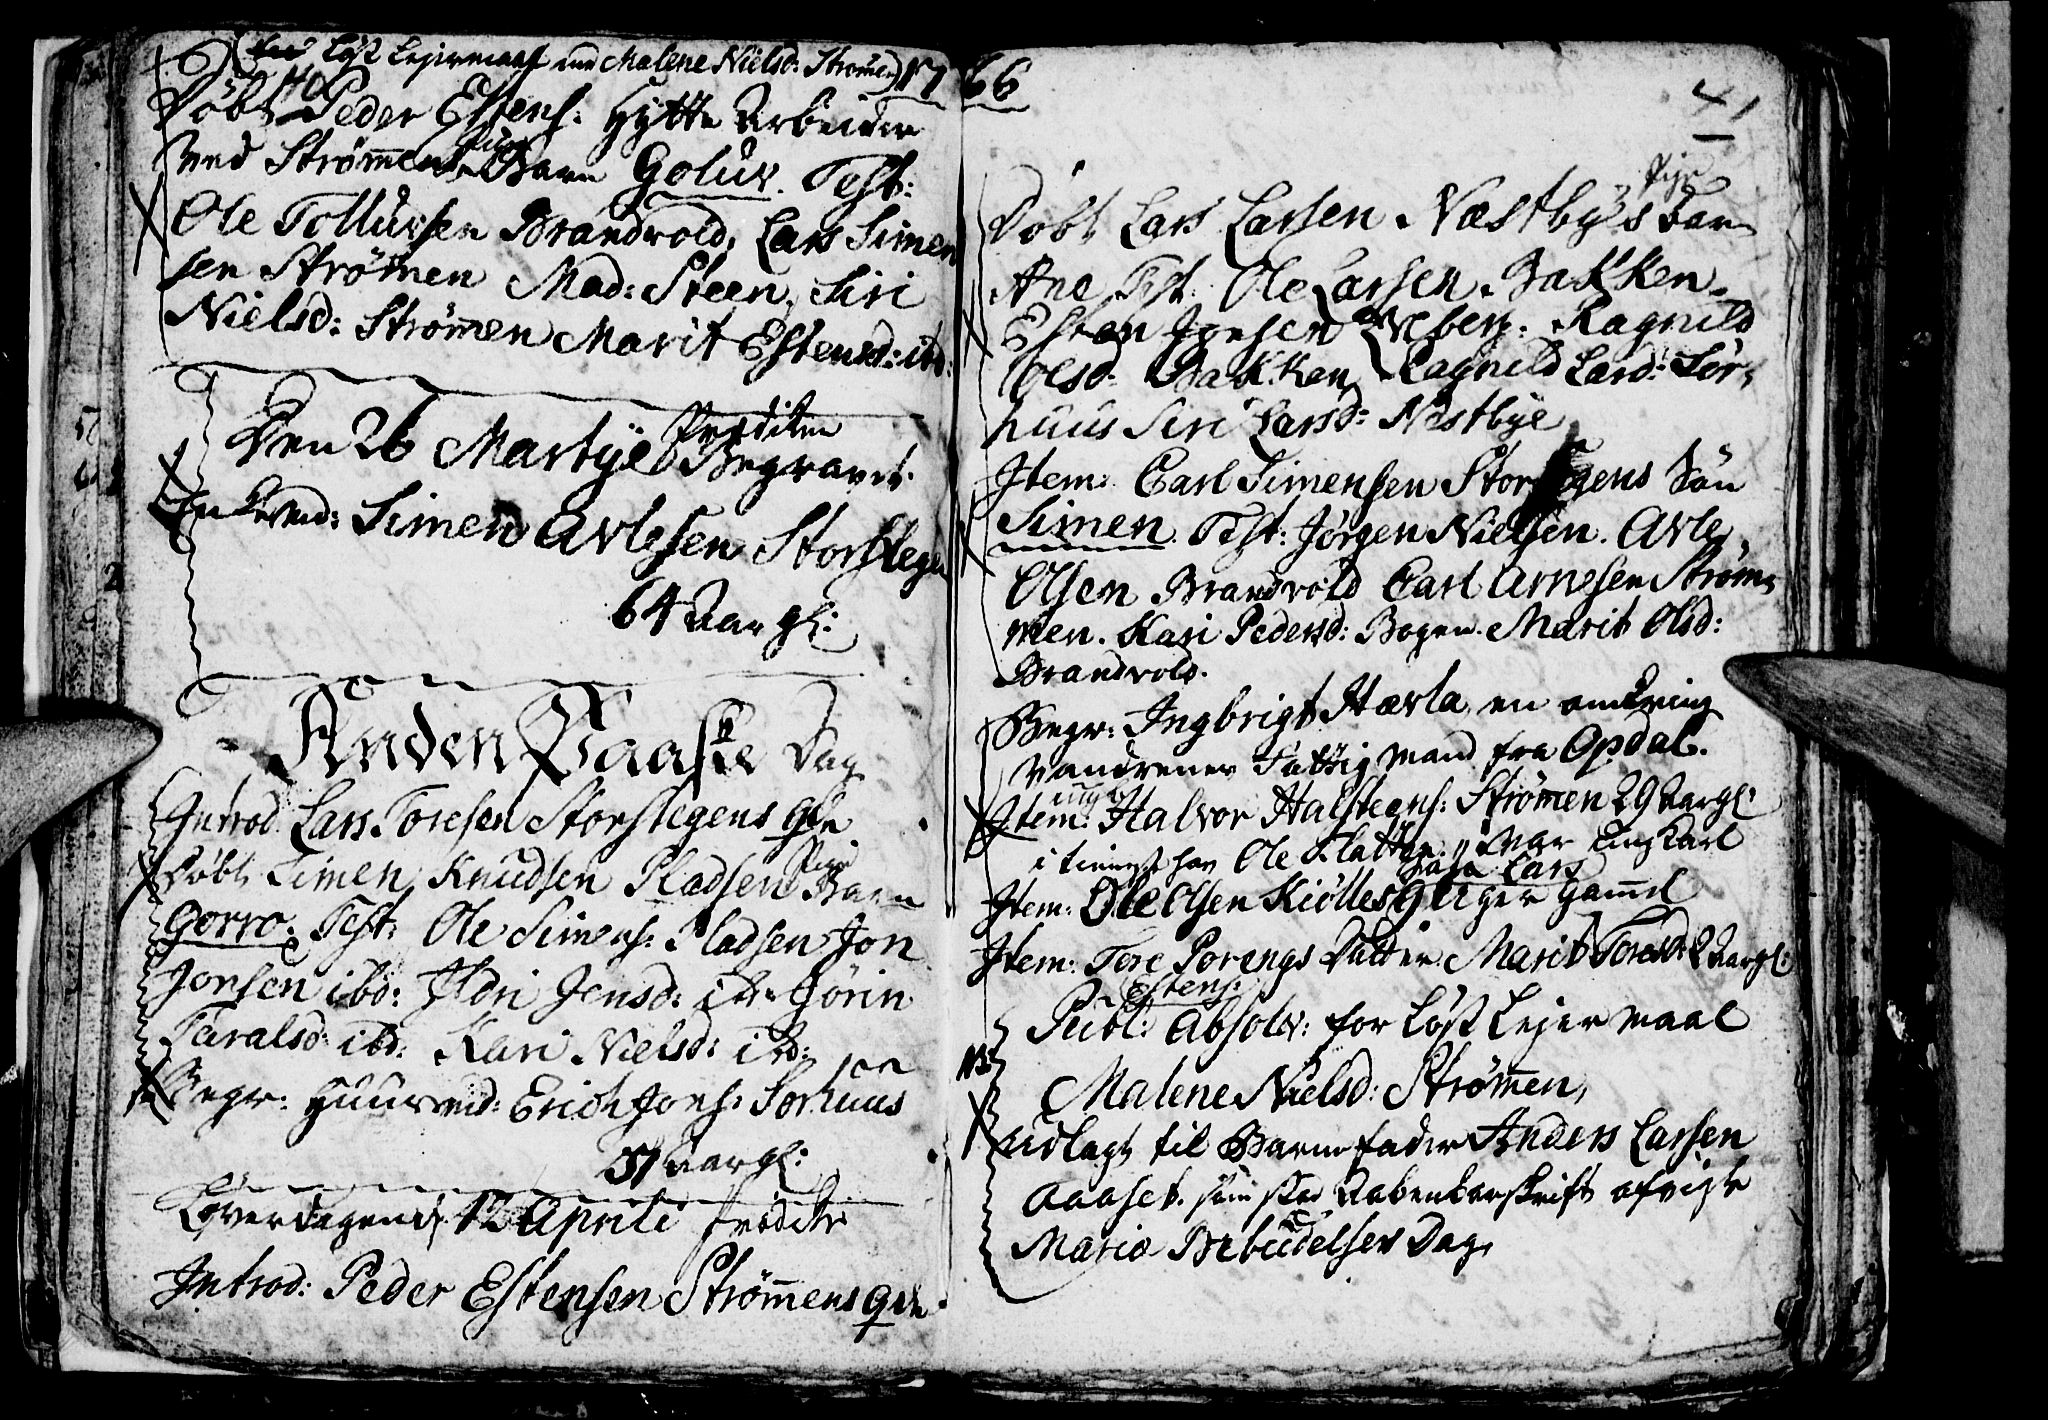 Løst Lejermaal med Malene Nielsd: Strømen) 1766
40
Døbt Peder Estens: Hytte Arbeider
Pige
ved Strømmens Barn Goluv. Test:
Ole Tolluvsen Brandvold, Lars Simen
sen Strömen Mad: Steen, Siri
Nielsd: Strömmen Marit Estensd: ibd:
Den 26 Martye Prediken
Begravet.
Simen Arlesen Storstegen
64 Aar gl:
Anden Paaske Dag
Introd. Lars Toresen Storstegens qde
Pige
Døbt Simen Knudsen Pladsen Barn
Gorro. Test: Ole Simens: Pladsen Jon
Jonsen ibd: Ildri Jensd: ibd: Jörin
Taralsd: ibd: Kari Nielsd: ibd:
Begr: Huusmd: Erich Jons: Sørhuus
51 Aar gl:
Løverdagen d. 12 Aprili Prediken
Introd: Peder Estensen Strömmens qde.
41
Pige
Döbt Lars Larsen Næstbys Barn
Ane Test: Ole Larsen Bakken.
Esten Jonsen Ragnild
Olsd: Bakken, Ragnild Larsd: Sör-
huus Siri Larsd: Nestbye
Item: Carl Simensen Storstegens Sön
Simen Test: Jörgen Nielsen. Arle
Olsen Brandvold Carl Arnesen Ström-
men. Kari Pedersd: Bogen. Marit Olsd:
Brandvold.
Begr: Ingbrigt Hævla en omkring
vandrener Fattig Mand fra Opdal.
ungk
Item: Halvor Halstegns: Strömen 29 Aar gl:
i tieneste hos Ole Flatten. var ung Karl
Lars
Item: Ole Olsen Kiölles 9 Uger gammel
Item: Tore Porengs Datter Marit Toresd: 2 Aar gl:
Estens:
Publ: Absolv: for Løst Lejermaal
NB:
Malene Nielsd: Strömen,
udlagt til Barnefader Anders Larsen
Aaaset. Aabenbarskrift
Mariæ Bebudelses Dag.